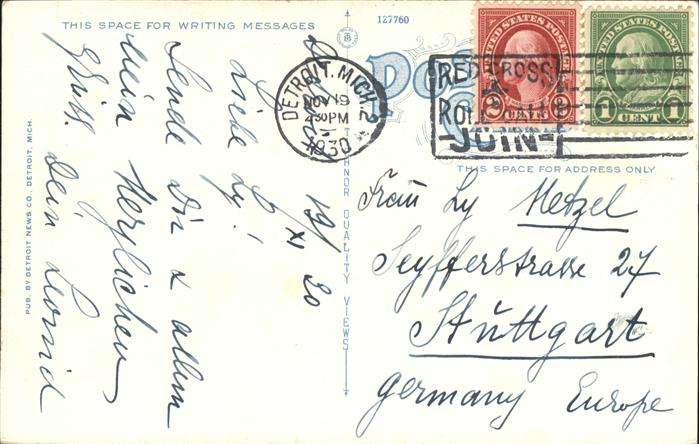 THIS SPACE FOR WRITING MESSAGES
127760
Detroit
19/XI 30
Liebe Ly!
Sende Dir & allen
mein Herzlichen
Gruss. Dein Leonid
PUB. BY DETROIT NEWS CO., DETROIT, MICH.
QUALITY VIEWS
DETROIT, MICH. 2
NOV 19
4 30 PM
1930
UNITED STATES POSTAGE
2 CENTS 2
UNITED STATES POSTAGE
1 CENT 1
RED CROSS
JOIN
THIS SPACE FOR ADDRESS ONLY
Frau Ly Metzel
Seyfferstrasse 27
Stuttgart
Germany Europe